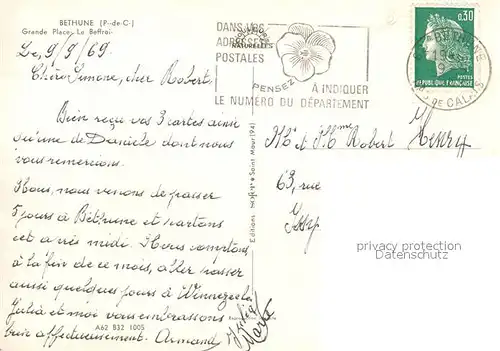 BETHUNE (P.-de-C.)
Grande Place - Le Beffroi
Le, 9/9/69
Chère Simone, cher Robert,
Bien reçu vos 3 cartes ainsi
qu'une de Danièle dont nous
vous remercions.
Nous, nous venons de passer
5 jours à Béthune et partons
cet après midi. Nous comptons
à la fin de ce mois, aller passer
aussi quelques jours à Winnezeele.
Julia et moi vous embrassons
bien affectueusement. Armand
Julia
Marthe
A62 832 1005
Editions
Saint Maur (94)
DANS VOS
ADRESSES
POSTALES
NATURELLES
PENSEZ
À INDIQUER
LE NUMÉRO DU DÉPARTEMENT
0,30
POSTES
REPUBLIQUE FRANÇAISE
PAS DE CALAIS
Mr et Mme Robert Henry
63, rue
privacy protection
DSGVO